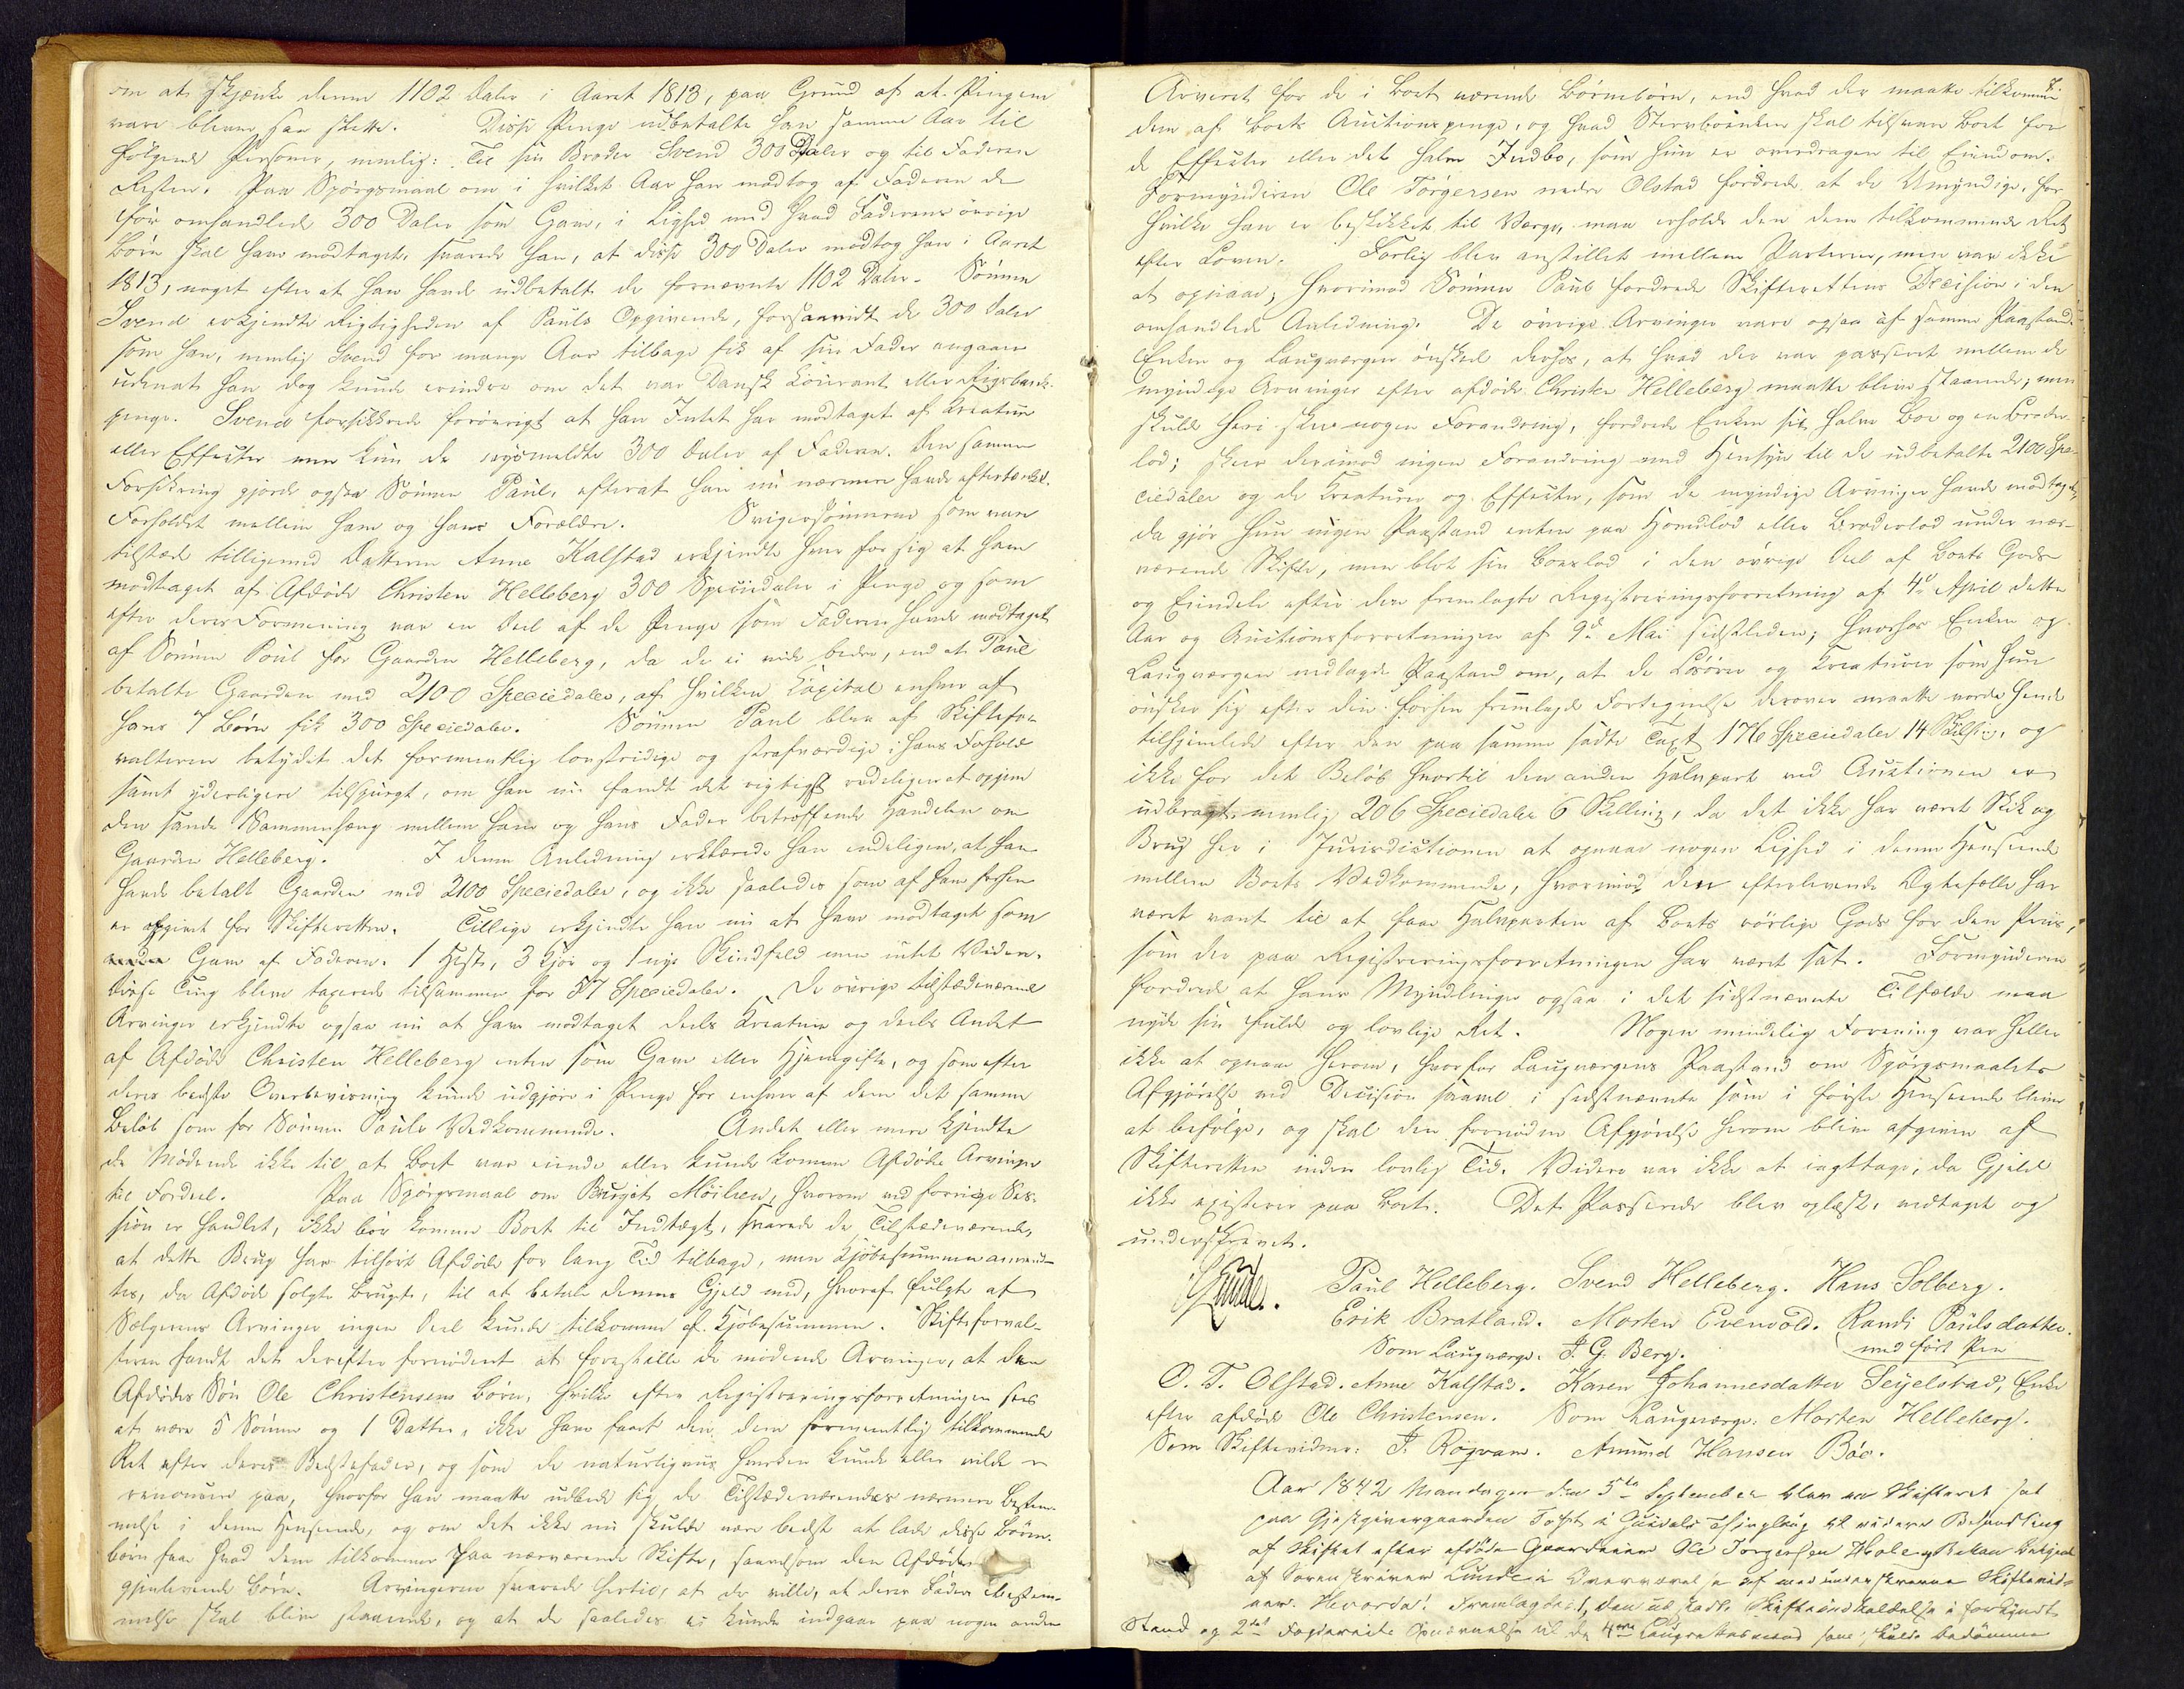 om at skjænke denne 1102 Daler i Aaret 1813, paa Grund af at Pengene
vare blevne saa slette. Disse Penge udbetalte han samme Aar til
følgende Personer, nemlig: Til sin Broder Svend 300 Daler og til Faderen
Resten. Paa Spørgsmaal om i hvilket Aar han modtog af Faderen de
før omhandlede 300 Daler som Gave, i Lighed med hvad Faderens øvrige
Børn skal have modtaget, svarede han, at disse 300 Daler modtog han i Aaret
1813, noget efter at han havde udbetalt de fornævnte 1102 Daler. Sønnen
Svend erkjendte Rigtigheden af Pauls Opgivende, forsaavidt de 300 Daler
som han, nemlig Svend for mange Aar tilbage fik af sin Fader angaaer
udenat han dog kunde erindre om det var Dansk Courant eller Rigsbank-
penge. Svend forsikkrede forøvrigt at han Intet har modtaget af Kreature
eller Effecter men kun de ommeldte 300 Daler af Faderen. Den samme
Forsikring gjorde ogsaa Sønnen Paul, efterat han nu nærmere havde eftertænkt
Forholdet mellem ham og hans Forældre. Svigersønnerne som vare
tilstæde tilligemed Datteren Anne Kalstad erkjendte hver for sig at have
modtaget af Afdøde Christen Helleberg 300 Speciedaler i Penge og som
efter deres Formening var en Deel af de Penge som Faderen havde modtaget
af Sønnen Poul for Gaarden Helleberg, da de ei vide bedre, end at Paul
betalte Gaarden med 2100 Speciedaler, af hvilken Capital enhver af
hans 7 Børn fik 300 Speciedaler. Sønnen Paul blev af Skiftefor-
valteren betydet det formentlig lovstridige og strafværdige i hans Forhold
samt yderligere tilspurgt, om han nu fandt det rigtigst redeligen at opgive
den sande Sammenhæng mellem ham og hans Fader betræffende Handelen om
Gaarden Helleberg. I denne Anledning erklærede han endeligen, at han
havde betalt Gaarden med 2100 Speciedaler, og ikke saaledes som af ham forhen
er opgivet for Skifteretten. Tillige erkjendte han nu at have modtaget som
Gave af Faderen. 1 Hest, 3 Kjør og 1 nye Skindfeld men intet Videre.
Disse Ting bleve taxerede tilsammen for 57 Speciedaler. De øvrige tilstædeværende
Arvinger erkjendte ogsaa nu at have modtaget deels Kreature og deels Andet
af Afdøde Christen Helleberg enten som Gave eller Hjemgifte, og som efter
deres bedste Overbeviisning kunde udgjøre i Penge for enhver af dem det samme
Beløb som for Sønnen Pauls Vedkommende. Andet eller mere kjendte
de Mødende ikke til at Boet var eiende eller kunde komme Afdødes Arvinger
til Fordeel. Paa Spørgsmaal om Bruget Møilien, hvorom ved forrige Ses-
sion er handlet, ikke bør komme Boet til Indtægt, svarede de Tilstædeværende,
at dette Brug har tilhørt Afdøde for lang Tid tilbage, men Kjøbesummen anvend-
tes, da Afdøde solgte Bruget, til at betale dennes Gjeld med, hvoraf fulgte at
Sælgerens Arvinger ingen Deel kunde tilkomme af Kjøbesummen. Skifteforval-
teren fandt det derefter fornødent at forestille de mødende Arvinger, at den
Afdødes Søn Ole Christensens Børn, hvilke efter Registreringsforretningen sees
at være 5 Sønner og 1 Datter, ikke have faaet den, dem formentlig tilkommende
Ret efter deres Bedstefader, og som de naturligviis hverken kunde eller vilde
renoncere paa, hvorfor han maatte udbede sig de Tilstædeværendes nærmere Bestem-
melse i denne Henseende, og om det ikke nu skulde være bedst at lade disse Børne-
børn faae hvad dem tilkommer paa nærværende Skifte, saavelsom den Afdødes
gjenlevende Børn. Arvingerne svarede hertil, at de ville, at deres Faders Bestem-
melse skal blive staaende, og at de saaledes ei kunde indgaae paa nogen anden
8.
Arveret for de i Boet værende Børnebørn, end hvad der maatte tilkomme
dem af Boets Auctionspenge, og hvad Stervboenken skal tilsvare Boet for
de Effecter eller det halve Indbo, som hun er overdragen til Eiendom.
Formynderen Ole Torgersen nedre Olstad fordrede at de Umyndige, for
hvilke han er beskikket til Værge, maa erholde den dem tilkommende Ret
efter Loven. Forlig blev anstillet mellem Parterne, men var ikke
at opnaae; hvorimod Sønnen Paul fordrede Skifterettens Decision i den
omhandlede Anledning. De øvrige Arvinger vare ogsaa af samme Paastand.
Enken og Laugværgen ønskede derhos, at hvad der var passeret mellem de
myndige Arvinger efter afdøde Christen Helleberg maatte blive staaende; men
skulde heri skee nogen Forandring, fordrede Enken sit halve Boe og en Broder-
lod; skeer derimod ingen Forandring med Hensyn til de udbetalte 2100 Spe-
ciedaler og de Kreaturer og Effecter, som de myndige Arvinger havde modtaget,
da gjør hun ingen Paastand enten paa Hovedlod eller Broderlod under nær-
værende Skifte, men blot sin Boeslod i den øvrige Deel af Boets Gods
og Eiendele efter den fremlagte Registreringsforretning af 4de April dette
Aar og Auctionsforretningen af 9de Mai sidstleden; hvorhos Enken og
Laugværgen nedlagde Paastand om, at de Løsøre og Kreaturer som hun
ønsker sig efter den forhen fremlagde Fortegnelse derover maatte vorde hende
tilhjemlede efter den paa samme satte Taxt 176 Speciedaler 14 Skilling, og
ikke for det Beløb hvortil den anden Halvpart ved Auctionen er
udbragt nemlig 206 Speciedaler 6 Skilling, da det ikke har været Skik og
Brug her i Jurisdictionen at opnaae nogen Lighed i denne Henseende
mellem Boets Vedkommende, hvorimod den efterlevende Ægtefælle har
været vant til at faae Halvparten af Boets rørlige Gods for den Priis,
som der paa Registreringsforretningen har været sat. Formynderen
fordrede at hans Myndlinger ogsaa i det sidstnævnte Tilfælde maa
nyde sin fulde og lovlige Ret. Nogen mindelig Forening var heller
ikke at opnaae herom, hvorfor Laugværgens Paastand om Spørgsmaalets
Afgjørelse ved Decision saavel i sidstnævnte som i første Henseende bliver
at befølge, og skal den fornødne Afgjørelse herom blive afgiven af
Skifteretten inden lovlig Tid. Videre var ikke at iagttage, da Gjeld
ikke existerer paa Boet. Det Passerede blev oplæst, vedtaget og
underskrevet.
Lunde. Paul Helleberg. Svend Helleberg. Hans Solberg.
Erik Bratland. Morten Evenvold. Randi Paulsdatter.
Som Laugværge: P. G. Berg. med ført Pen
O. T. Olstad. Anne Kalstad. Karen Johannesdatter Seyelstad, Enke
efter afdøde Ole Christensen. Som Laugværge: Morten Helleberg.
Som Skiftevidner: P. Røjvam. Amund Hansen Bøe.
Aar 1842 Mandagen den 5te September blev en Skifteret sat
paa Gjestgivergaarden Tofte i Thinglaug til videre Behandling
af Skiftet efter afdøde Gaardeier Ole Torgersen Betjent
af Sorenskriver Lunde i Overværelse af medunderskrevne Skiftevid-
ner. Hvorda: Fremlagdes 1, den udstædte Skifteindkaldelse i forkyndt
Stand og 2det Fogderiets Opnævnelse til de 4re Laugrettesmænd som skulde bedømme